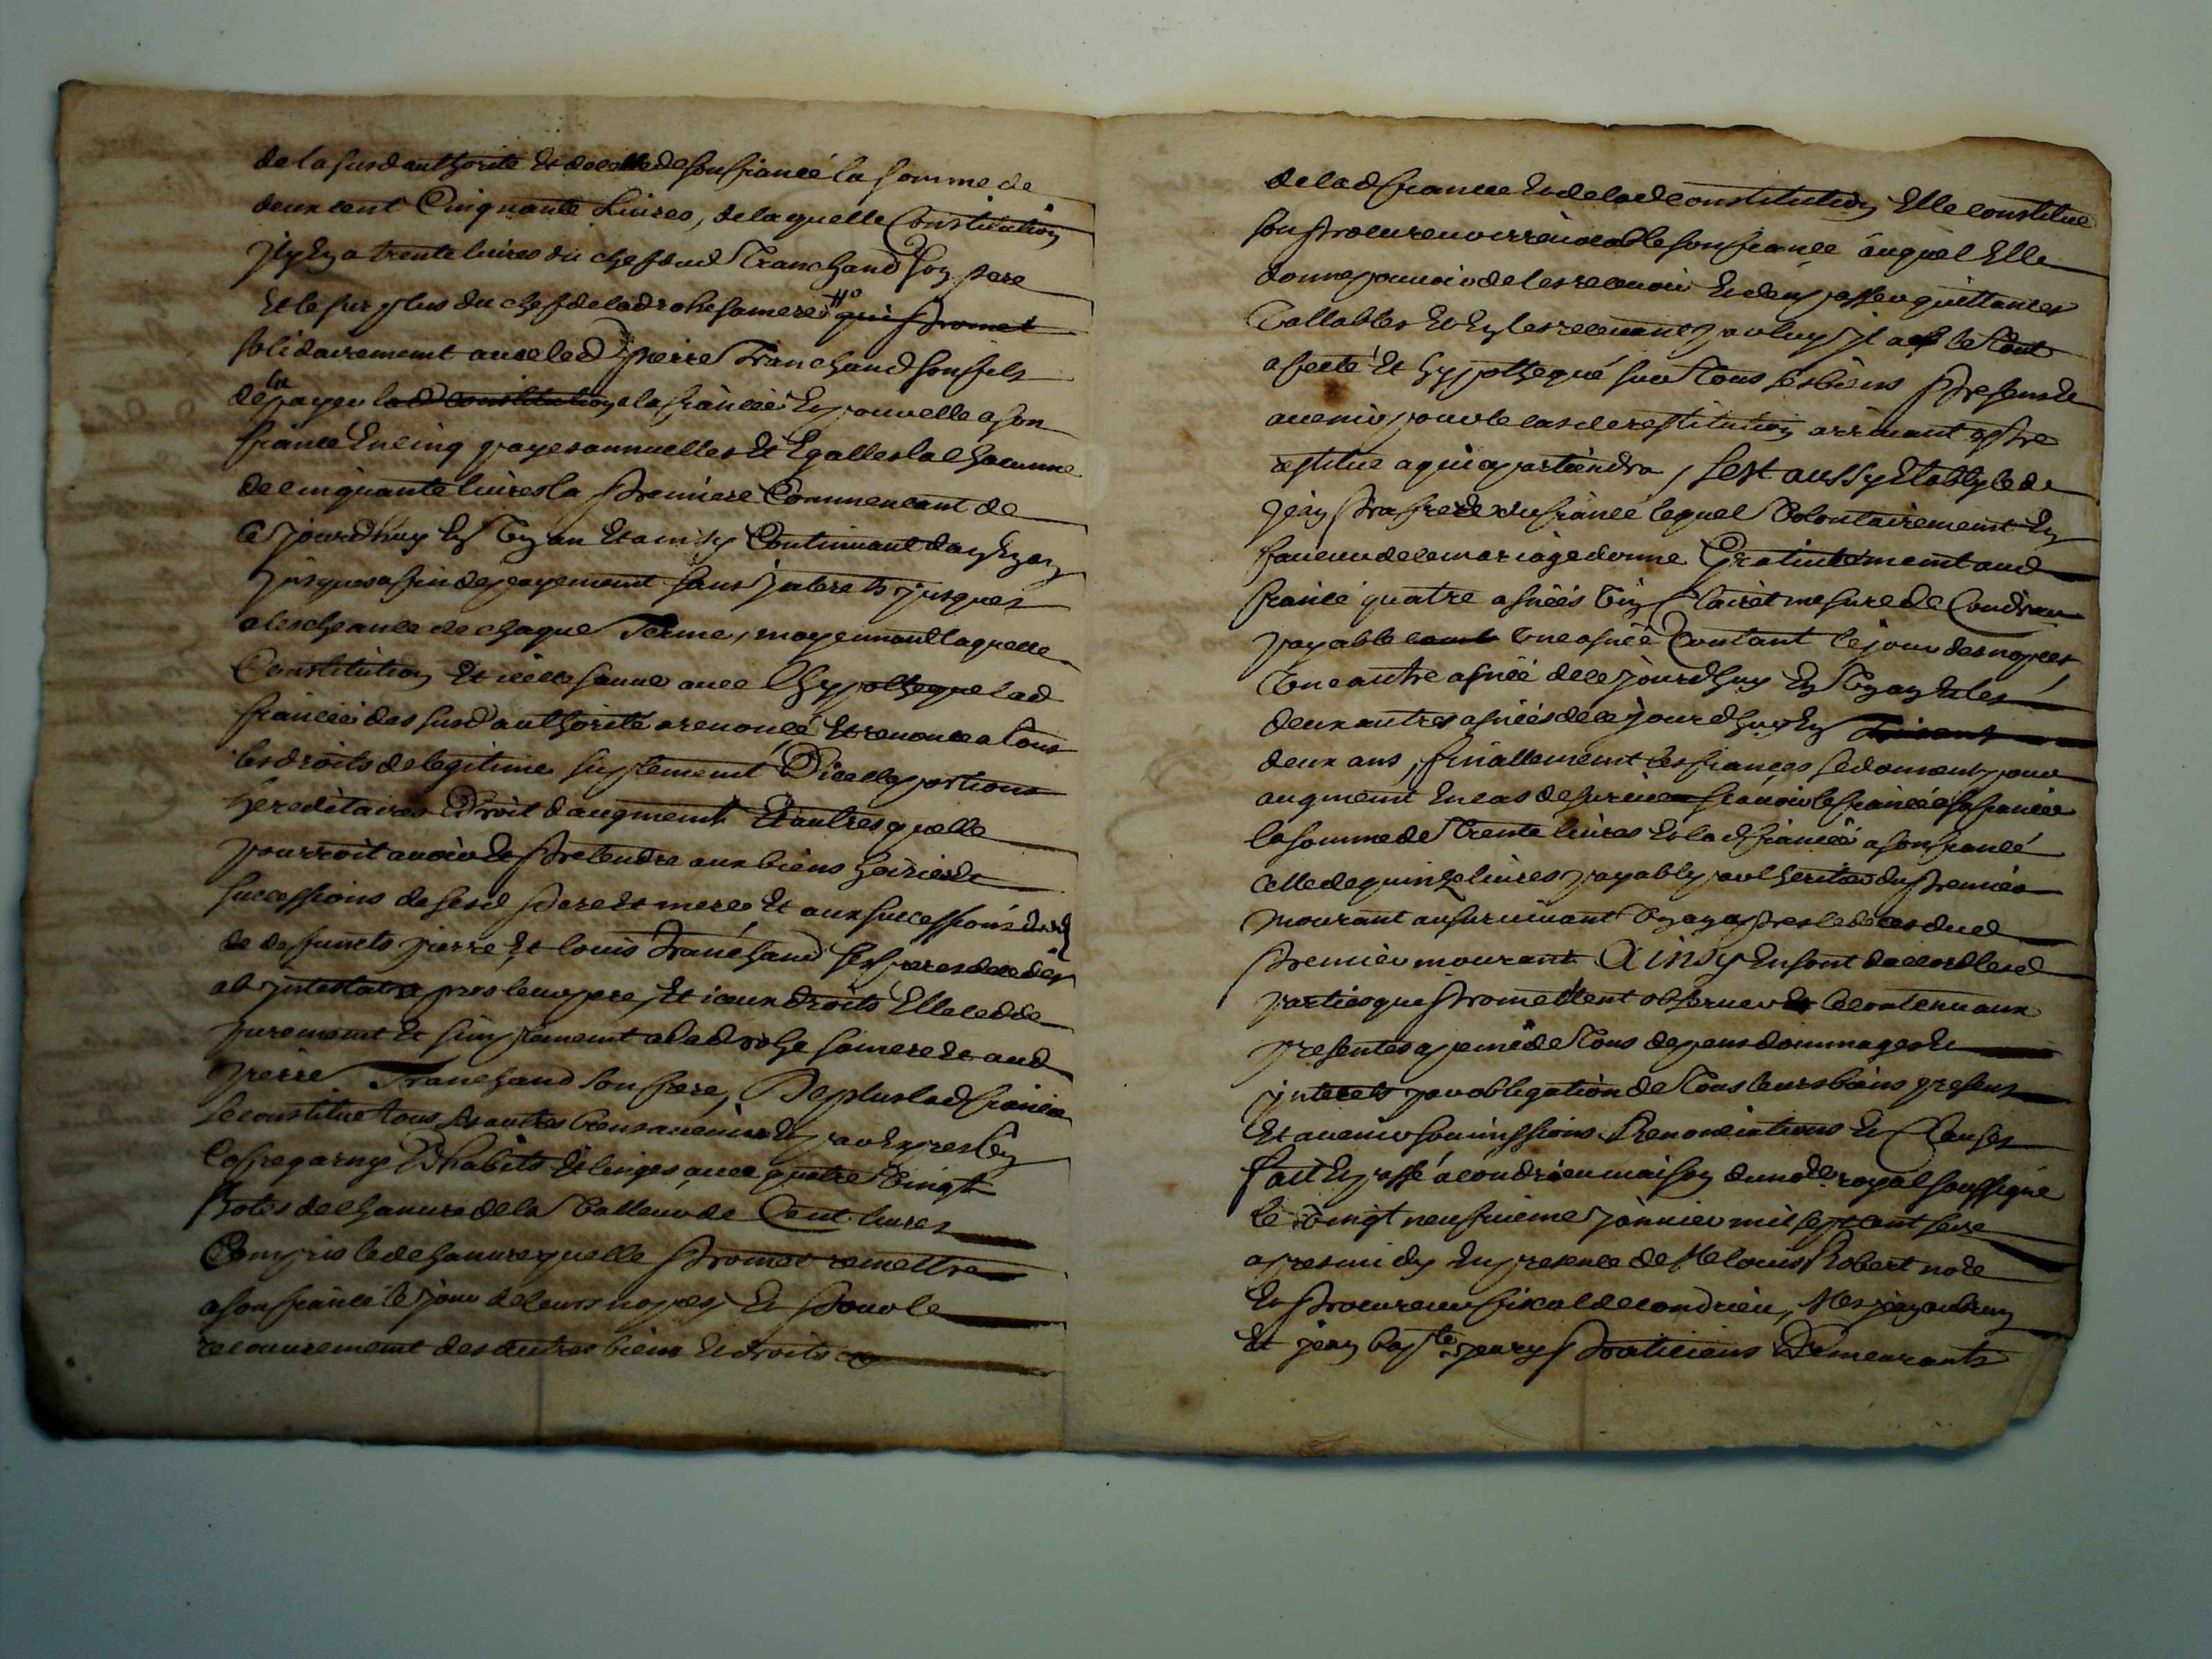 de la susd authorité Et de celle de son fiancé la somme de
deux cent Cinquante Livres, de laquelle Constitution
jl y En a trente livres du chef dud Tranchand son pere
Et le surplus du chef de lad rohe sa mere qui promet
solidairement avec led pierre Tranchand son fils
de la payer lad Constitution a la fiancée Ey pour elle a son
fiancé En cinq payes annuelles Et Egalles la chacunne
de cinquante livres la premiere Commencant de
ce jourdhuy En Un an Et ainsy Continuant dan En an
jusques a fin de payement sans jnterets jusques
a lescheance de chaque Terme, moyennant laquelle
Constitution Et icelle sauve avec Lhyppotheque lad
fiancée des susd authorité a renoncé Et renonce a Tous
les droits de legitime suplement Dicelle portions
hereditaires Droit daugment Et autres quelle
pourroit avoir Et pretendre aux biens hoiries Et
successions de sesd pere Et mere Et aux successions
de deffuncts pierre Et louis Tranchand ses freres decedes
ab jntestat apres leur pere, Et iceux droits Elle cedde
purement Et simplement a lad rohe sa mere Et aud
pierre Tranchand son frere, De plus lad fiancée
se constitue tous ses autres biens avenir Et par Expres Un
Coffre garny Dhabits Et linges avec quatre Vingt
notes de chanvre de la Valleur de Cent livres
Compris led chanvre quelle promet remettre
a son fiancé le jour de leurs nopces Et pour le
recouvrement des autres biens Et droits
de lad fiancée Et de lad constitution Elle constitue
son procureur irrevocable son fiancé auquel Elle
donne pouvoir de les recevoir Et den passer quittances
Vallables Et En les recevant par luy jl a le Tout
afecté Et hyppothequé sur Tous ses biens presens Et
avenir pour le cas de restitution arrivant Estre
restitué a qui apartiendra, sest aussy Etably led
jean frere du fiancé lequel Volontairement En
faveur de ce mariage donne Gratuitement aud
fiancé quatre asnées Vin Clairet mesure de Condrieu
payable Une asnée Contant le jour des nopces,
Une autre asnée de ce jourdhuy En Un an Et les
deux autres asnées de ce jourdhuy En
deux ans, finallement les fiancés se donnent pour
augment En cas de survie scavoir le fiancé a sa fiancée
la somme de Trente livres Et lad fiancée a son fiancé
celle de quinze livres payable par lheritier du premier
mourant au survivant Un an apres le deces dud
premier mourant Ainsy En sont daccord lesd
parties que promettent observer Et le contenu aux
presentes a peine de Tous depens dommages Et
jnterets par obligation de Tous leurs biens presens
Et avenir soumissions Renonciations Et Clauses
fait Et passé a condrieu maison du not. royal soussigné
le Vingt neufvieme janvier mil sept cent seze
apres midy En presence de Me louis Robert note
Et procureur fiscal de condrieu, Mes
Et jean bapte praticiens Demeurants